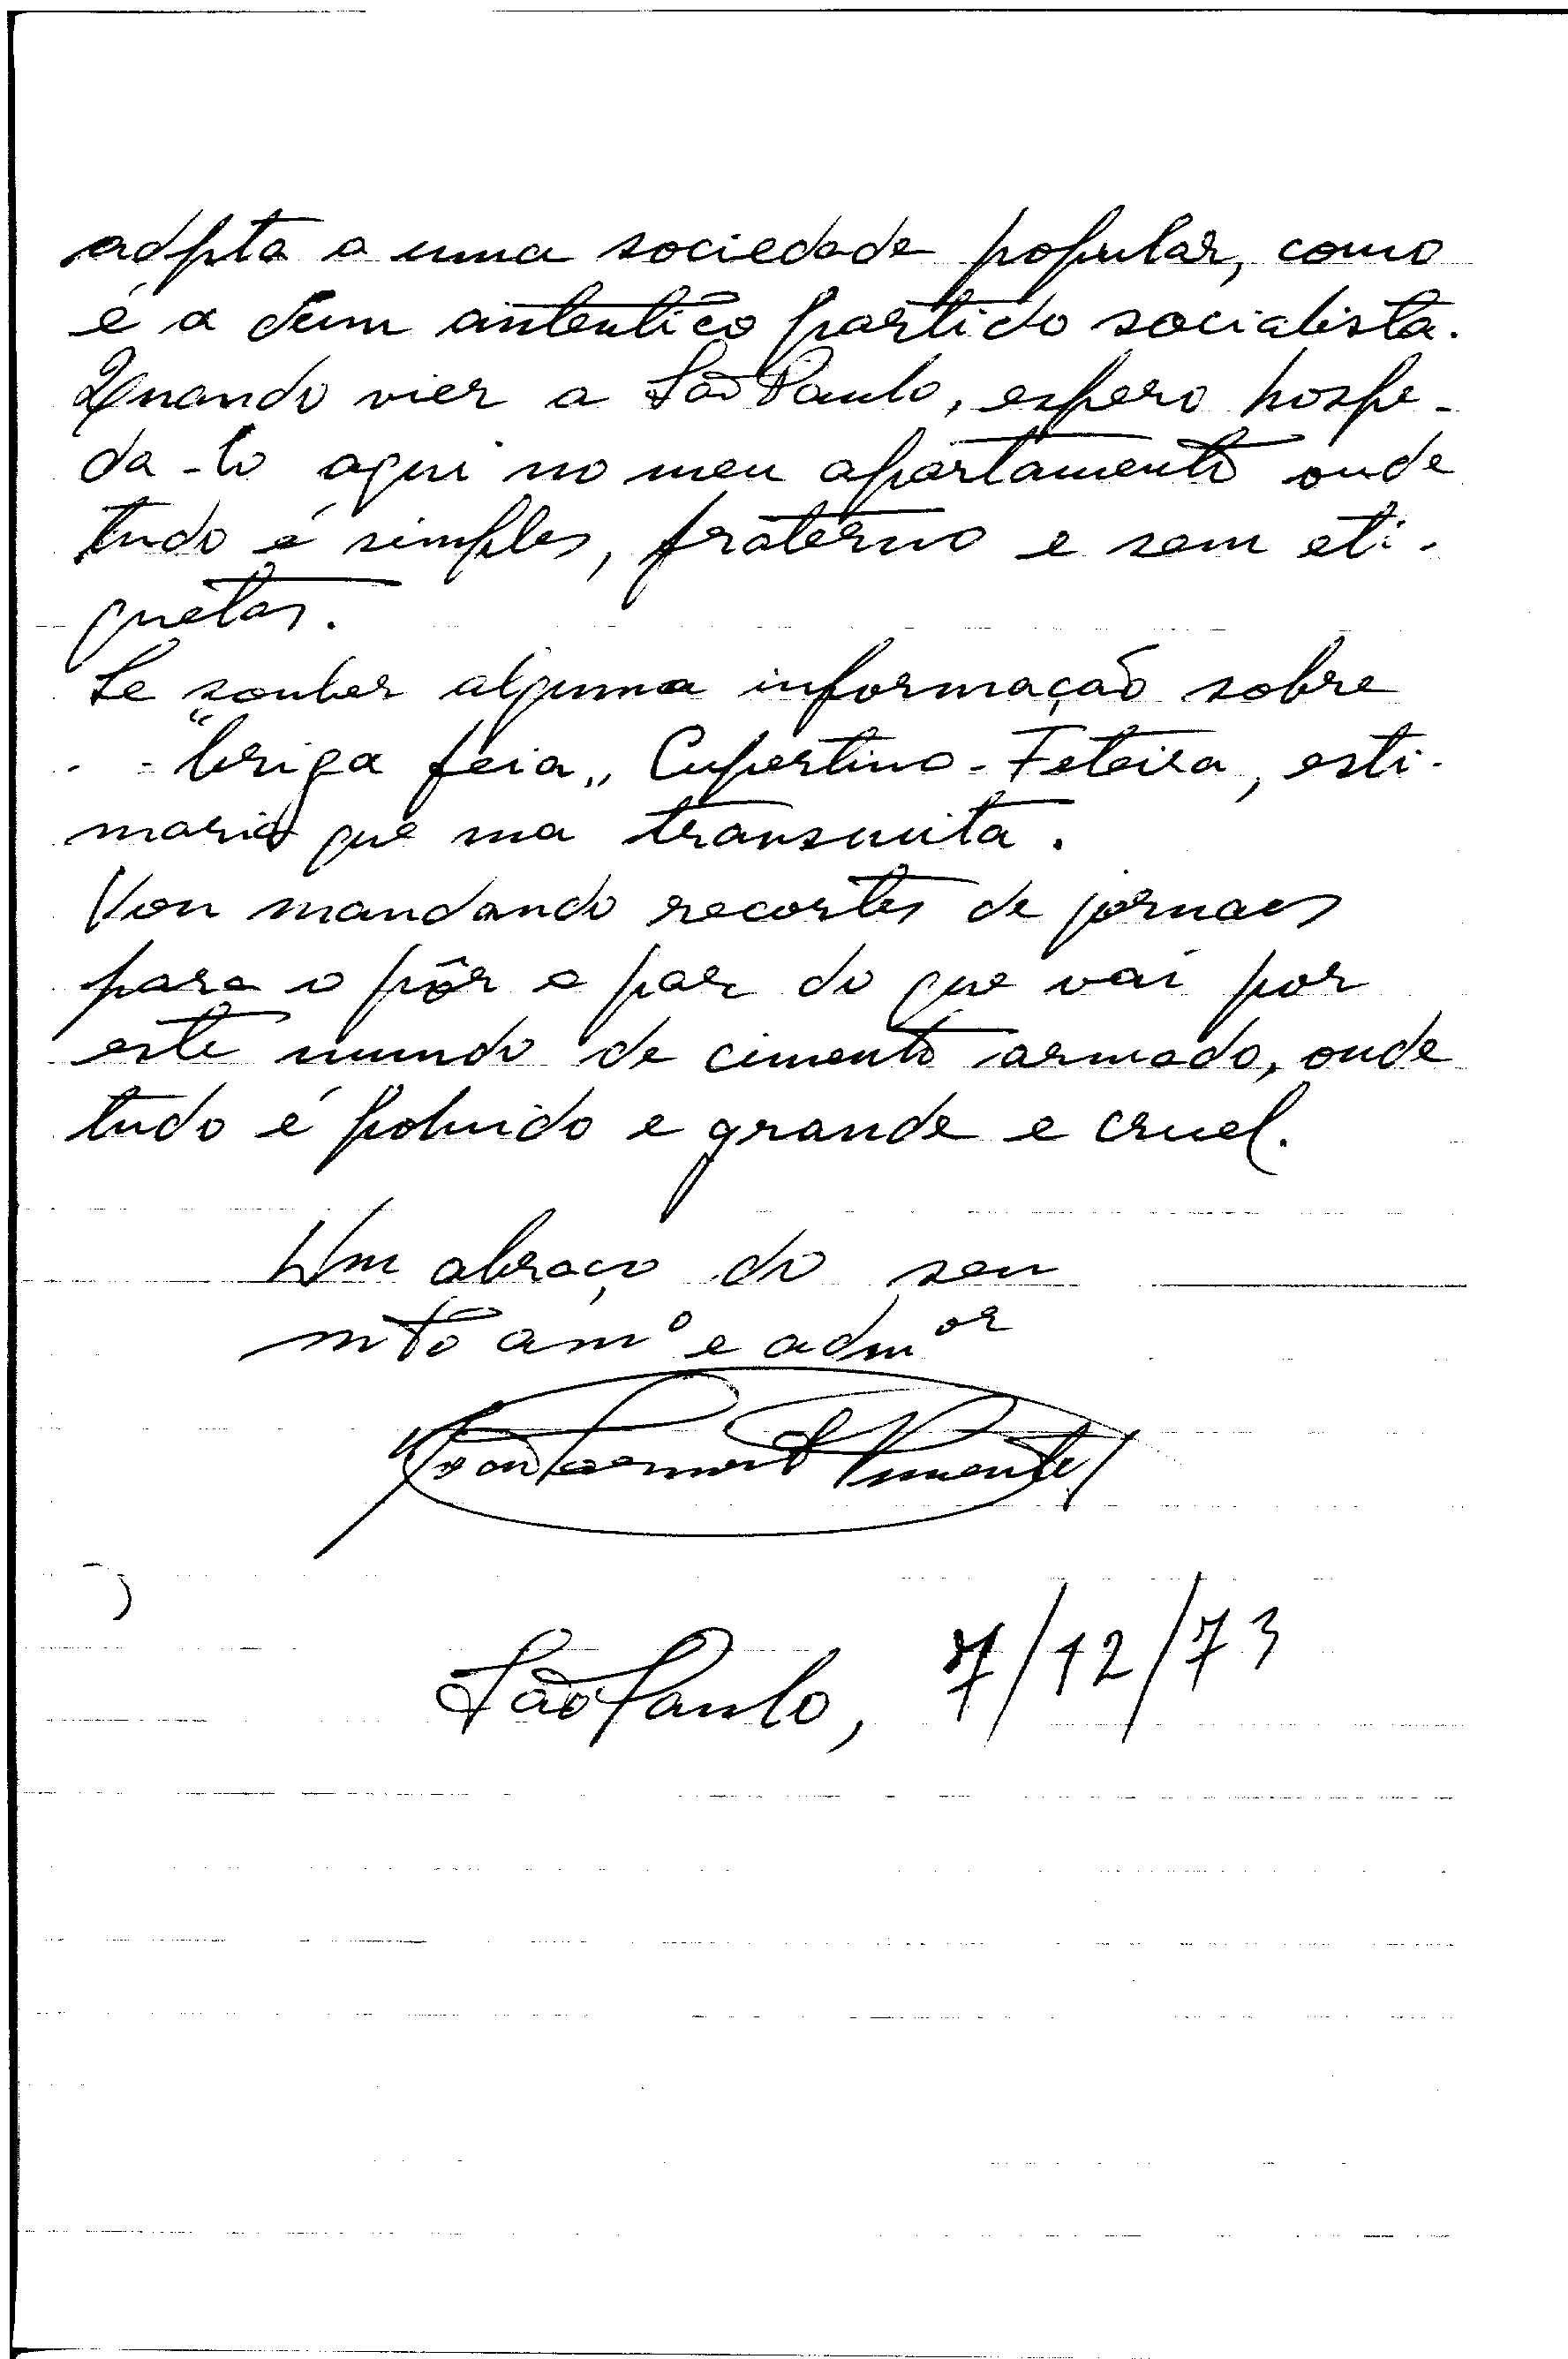 adpta a uma sociedade popular, como
é a dum autentico partido socialista.
Quando vier a São Paulo, espero hospe-
da-lo aqui no meu apartamento onde
tudo é simples, fraterno e sem eti-
quetas.
Se souber alguma informação sobre
"briga feia" Cupertino-Feteira, esti-
maria que ma transmita.
Vou mandando recortes de jornaes
para o pôr a par do que vai por
este mundo de cimento armado, onde
tudo é poluido e grande e cruel.
Um abraço do seu
mto amº e admor
Pimentel
São Paulo, 7/12/73